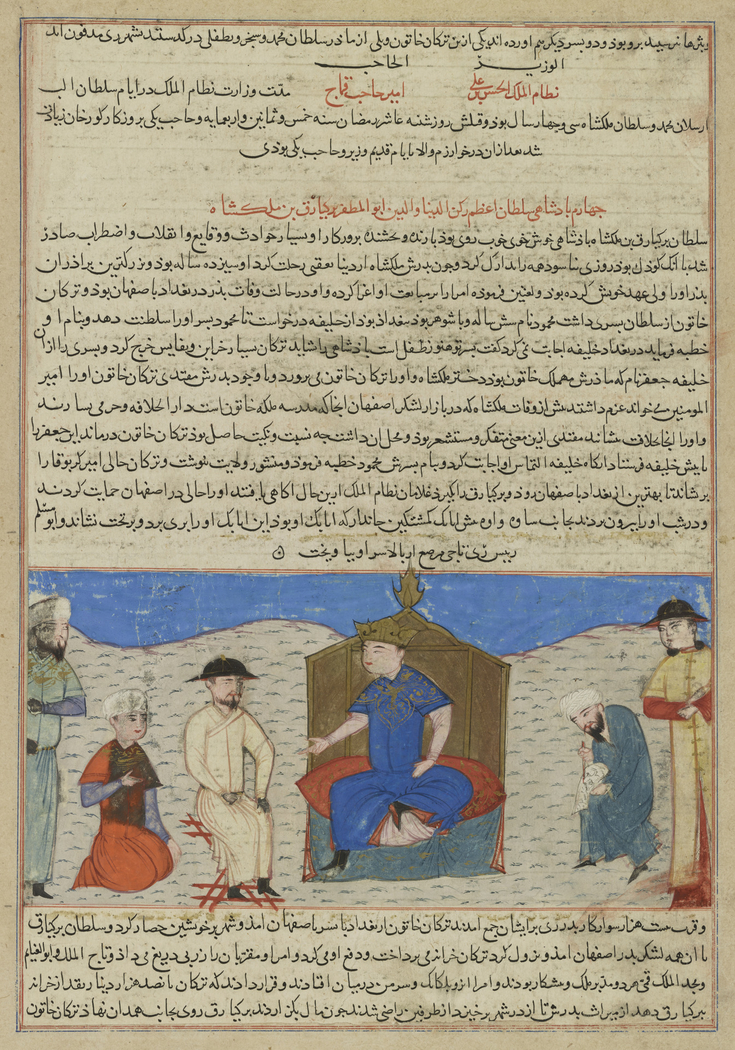 بدو بوذ و دو پسر دیکر هم اورده اند یکی از بن ترکان خاتون ولی از ماذر سلطان محمد و سنجر و بطفلی در کدشتند بشهر ری مدفون اند
الوزیر الحاجب
نظام الملک الحسن بن علی امیر حاجب قماج مدت وزارت نظام الملک در ایام سلطان الب
ارسلان محمد و سلطان ملکشاه سی و چهار سال بوذ و قتلش روز شنبه عاشر رمضان سنه خمس و ثمانین و اربعمایه و حاجب یکی بروزکار کورخان زیاذت
شد بعد از ان در خوارزم و الا بایام قدیم وزیر و حاجب یکی بوذی
چهارم باذشاهی سلطان اعظم رکن الدنیا والدین ابو المظفر برکیارق بن ملکشاه
سلطان برکیارق بن ملکشاه باذشاهی خوش خوی خوب روی بوذ بارنده و بخشنده بروزکار او بسیار حوادث و وقایع و انقلاب و اضطراب صادر
شد با انک کوذک بوذ روزی نیاسود همه را تدارک کرد و چون بدرش ملکشاه از دنیا بعقبی رحلت کرد او سیزده ساله بوذ و بزرکترین براذران
بذر او را ولی عهد خویش کرده بوذ و تعیین فرموده امرا را بر مبایعت او اغرا کرده و او در حالت وفات بذر در بغداد با صفهان بوذ و ترکان
خاتون از سلطان بسری داشت محمود نام شش ساله و با شوهر بوذ ببغداذ بوذ از خلیفه درخواست تا محمود بسر او را سلطنت دهد و بنام او
خطبه فرماید در بغداد خلیفه اجابت نمی کرد کفت بسر تو هنوز طفل است باذشاهی را نشاید ترکان بسیار خزاین و نفایس خرج کرد و بسری را از ان
خلیفه جعفر نام که ماذرش مهملک خاتون بوذ دختر ملکشاه و او را ترکان خاتون می برورد و با وجود بدرش مقتدی ترکان خاتون او را امیر
المومنین می خواند عزم داشتند بیش از وفات ملکشاه که در بازار لشکر اصفهان انجا که مدرسه ملکه خاتون است دار الخلافه و حرمی بسازند
و او را انجا بخلافت بنشاند مقتدی ازین معنی متفکر و مستشعر بوذ
بیش خلیفه فرستاد انکاه خلیفه التماس او اجابت کرد و بنام بسرش محمود خطبه فرموذ و منشور ولایت نوشت و ترکان حالی امیر کربوقا را
بر نشاند تا بهترین از بغداد با صفهان روذ و برکیارق را بکیرد غلامان نظام الملک ازین حال اکاهی یافتند او را حالی در اصفهان حمایت کردند
و در شب او را بیرون بردند بجانب ساوه و اوه بیش اتابک کمشتکین جاندار که اتابک او بوذ این اتابک او را بری برد و بر تخت نشاند و ابو مسلم
رییس ری تاجی مرصع از بالا سر او بیاویخت
و قرب بیست هزار سوار کار بدر ری بر ایشان جمع امدند ترکان خاتون از بغداد باز بسر باصفهان امذ و شهر بر خویشتن حصار کرد و سلطان برکیارق
با ان همه لشکر بدر اصفهان امذ و نزول کرد ترکان خزانه می برداخت و دفع او می کرد و امرا و مقربان را زر بی دریغ می داذ و تاج الملک و ابو الغنایم
و مجد الملک قمی هر دو مدبر ملک و مشکار بودند و امرا در میان افتادند و قرار دادند که ترکان بانصد هزار دینار نقد از خزانه
ببرکیارق دهد از میراث بدرش تا از در شهر برخیزد از طرفین راضی شدند چون مال بکزاردند برکیارق روی بجانب همدان نهاذ ترکان خاتون